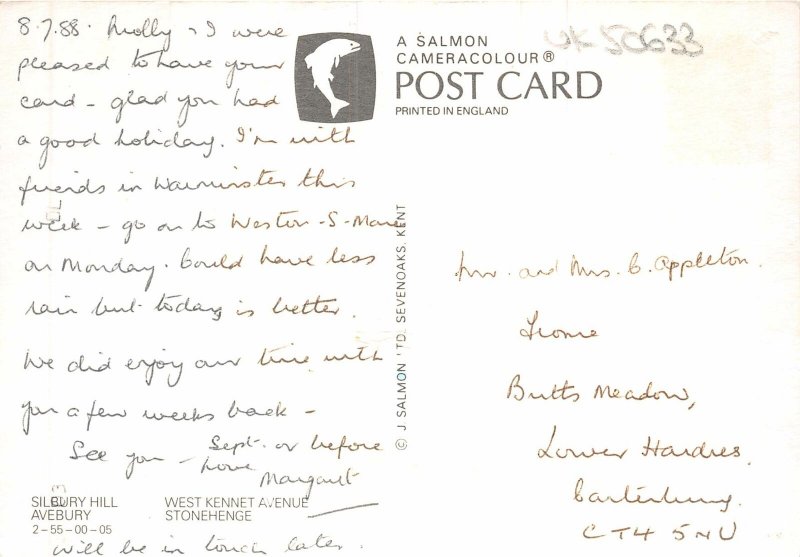 8.7.88. Molly - I were
pleased to have your
card - glad you had
a good holiday. I'm with
friends in Warminster this
week - go on to Weston-S-Mare
on Monday. Could have less
rain but today is better.
We did enjoy our time with
you a few weeks back -
See you - Sept. or before
love
Margaret
will be in touch later.
SILBURY HILL
AVEBURY
2-55-00-05
WEST KENNET AVENUE
STONEHENGE
A SALMON
CAMERACOLOUR®
POST CARD
PRINTED IN ENGLAND
UK 50633
© J SALMON LTD. SEVENOAKS. KENT
Mr. and Mrs. C. Appleton.
Butts Meadow,
Lower Hardres.
Canterbury.
CT4 5NU